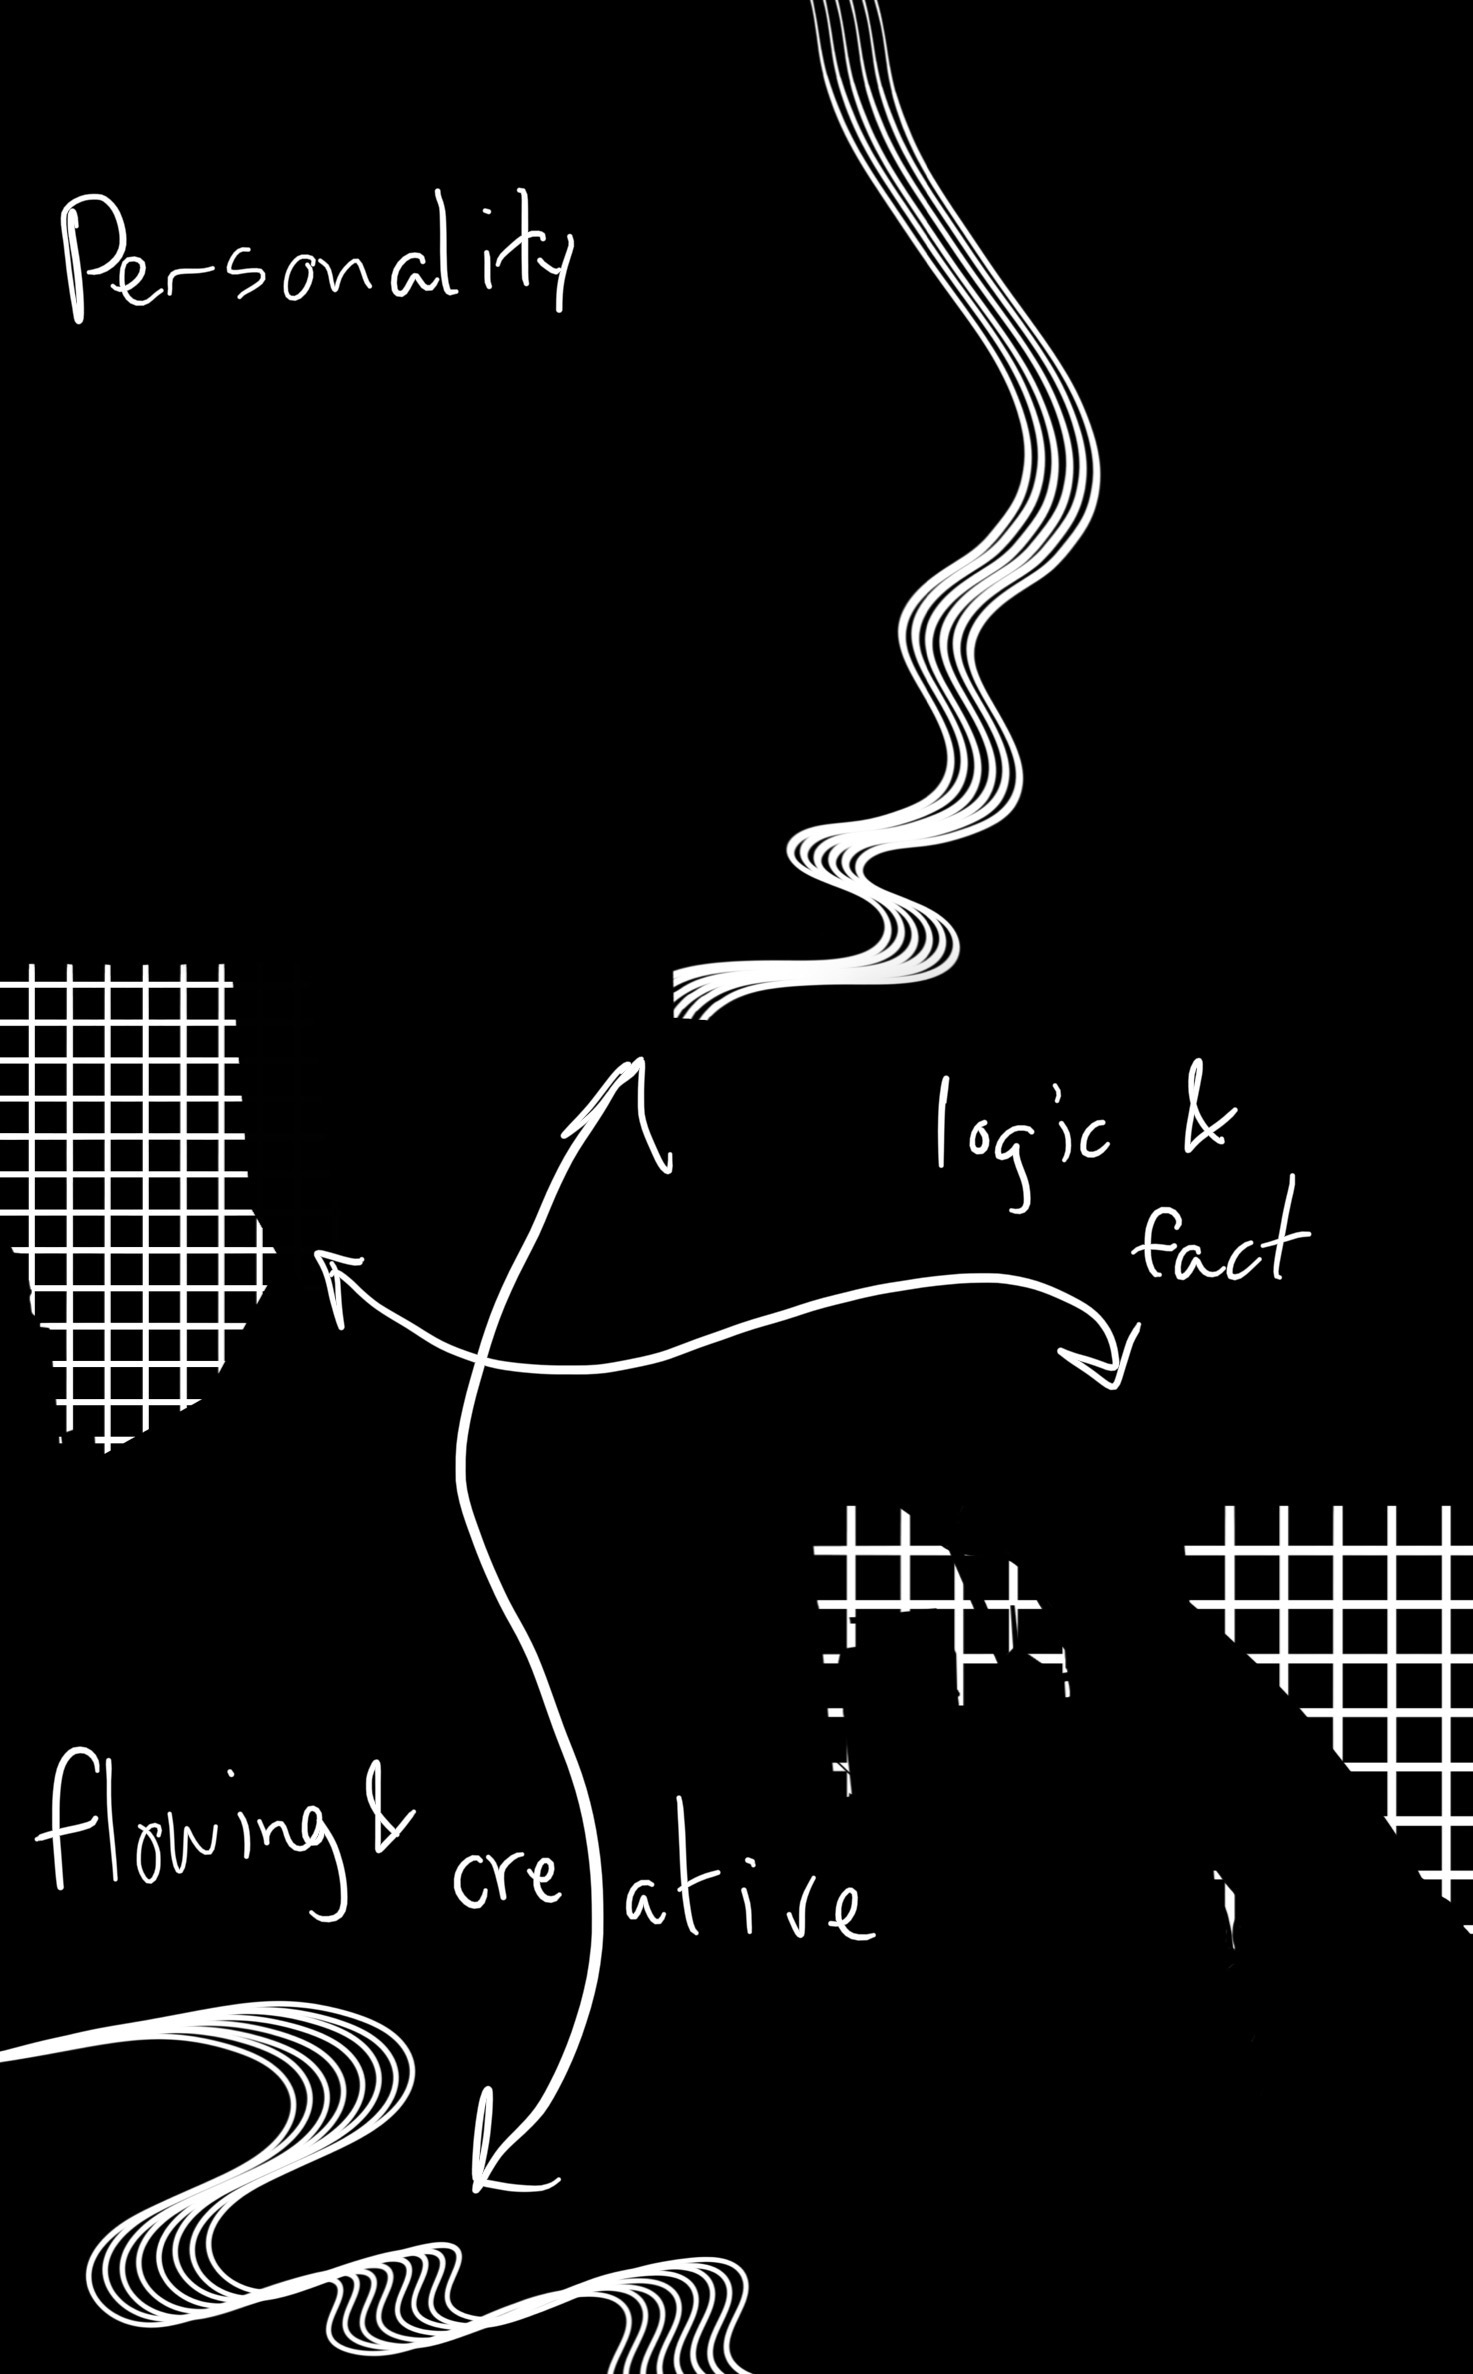 Personality
logic &
fact
flowing &
creative